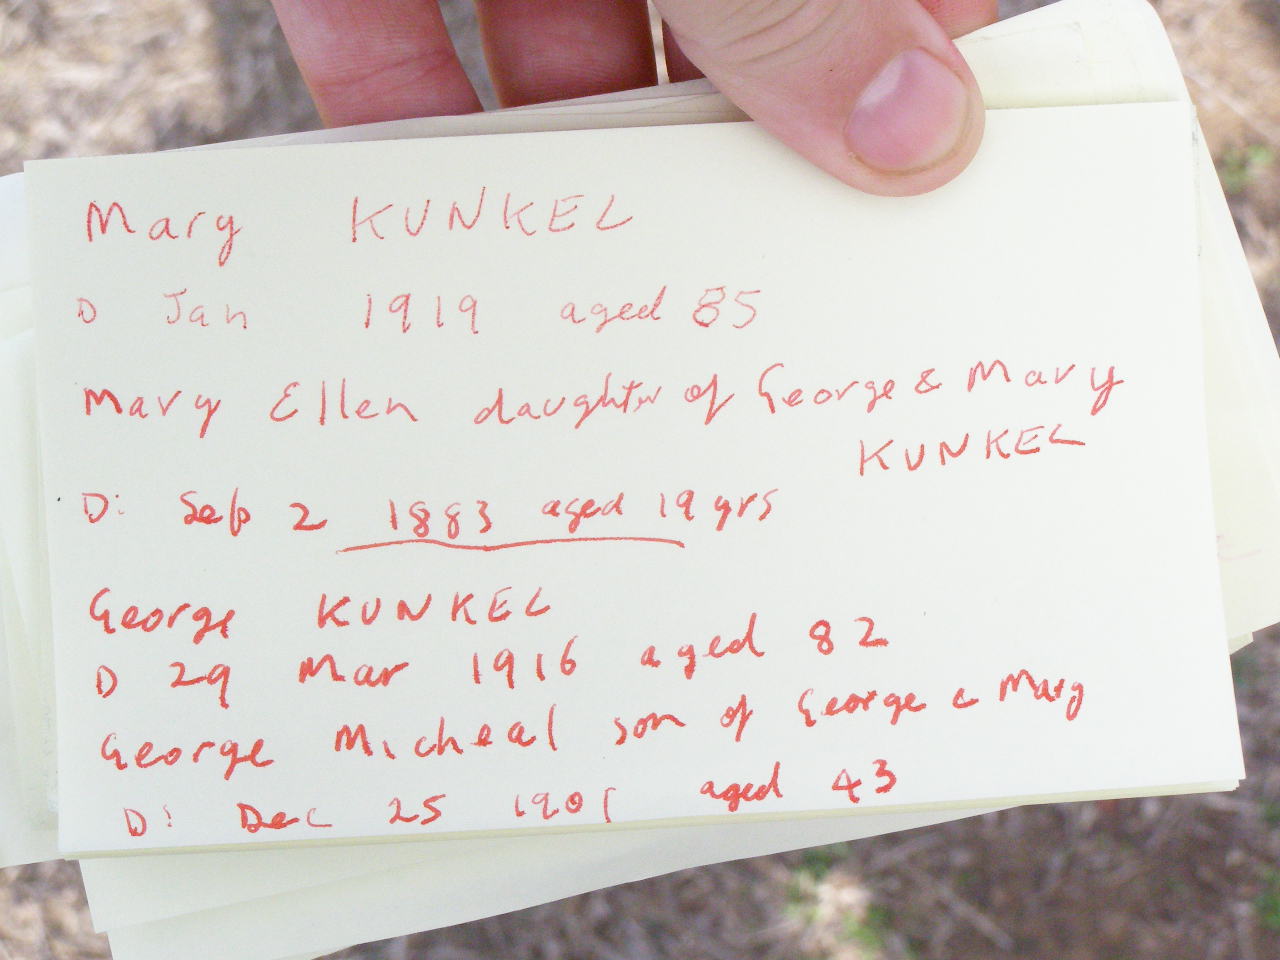 Mary KUNKEL
D Jan 1919 aged 85
Mary Ellen daughter of George & Mary
KUNKEL
D: Sep 2 1883 aged 19 yrs
George KUNKEL
D 29 Mar 1916 aged 82
George Micheal son of George & Mary
D: Dec 25 1901 aged 43